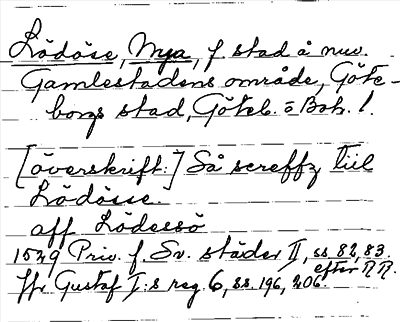 Lödöse, Nya, f. stad å nuv.
Gamlestadens område, Göte-
borgs stad, Göteb. o Boh. l.
[överskrift:] Så screffz till
Lödösse.
aff Lödessö
1529 Priv. f. Sv. städer II, ss. 82, 83.
efter RR.
Jfr Gustaf I:s reg. 6, ss. 196, 206.